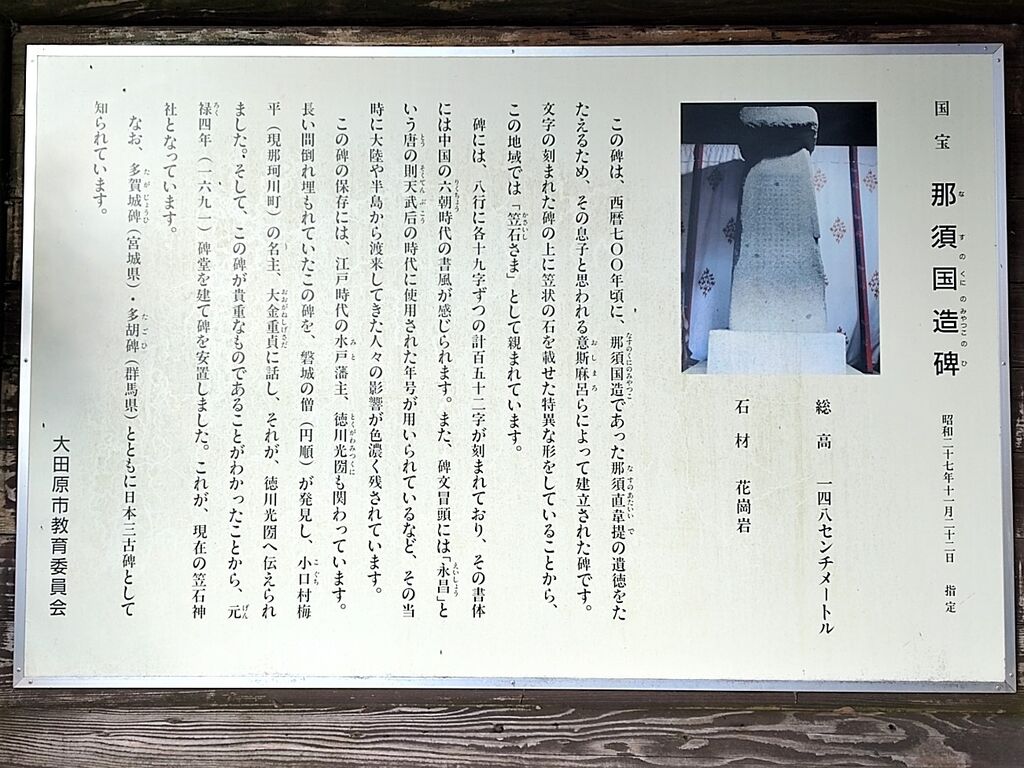 国宝 那須国造碑 昭和二十七年十一月二十二日 指定
なすのくにのみやつこのひ
総高 一四八センチメートル
石材 花崗岩
この碑は、西暦七〇〇年頃に、那須国造であった那須直韋提の遺徳をた
なすのくにのみやつこ なすのあたいいで
たえるため、その息子と思われる意斯麻呂らによって建立された碑です。
おしまろ
文字の刻まれた碑の上に笠状の石を載せた特異な形をしていることから、
この地域では「笠石さま」として親まれています。
かさいし
碑には、八行に各十九字ずつの計百五十二字が刻まれており、その書体
には中国の六朝時代の書風が感じられます。また、碑文冒頭には「永昌」と
りくちょう えいしょう
いう唐の則天武后の時代に使用された年号が用いられているなど、その当
とう そくてんぶこう
時に大陸や半島から渡来してきた人々の影響が色濃く残されています。
この碑の保存には、江戸時代の水戸藩主、徳川光圀も関わっています。
みと とくがわみつくに
長い間倒れ埋もれていたこの碑を、磐城の僧（円順）が発見し、小口村梅
こぐち
平（現那珂川町）の名主、大金重貞に話し、それが、徳川光圀へ伝えられ
おおがねしげさだ
ました。そして、この碑が貴重なものであることがわかったことから、元
げん
禄四年（一六九一）碑堂を建て碑を安置しました。これが、現在の笠石神
ろく
社となっています。
なお、多賀城碑（宮城県）・多胡碑（群馬県）とともに日本三古碑として
たがじょうひ たごひ
知られています。
大田原市教育委員会